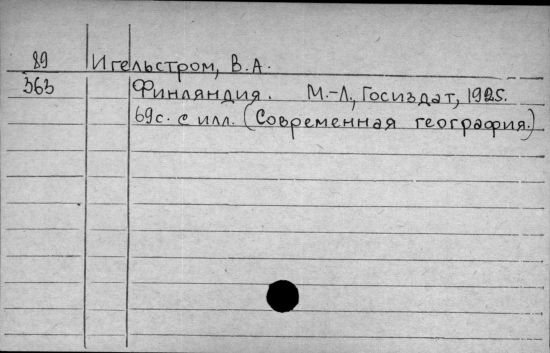 89 Игельстром, В.А.
363 Финляндия. М.-Л., Госиздат, 1925.
69с. с илл. (Современная география.)